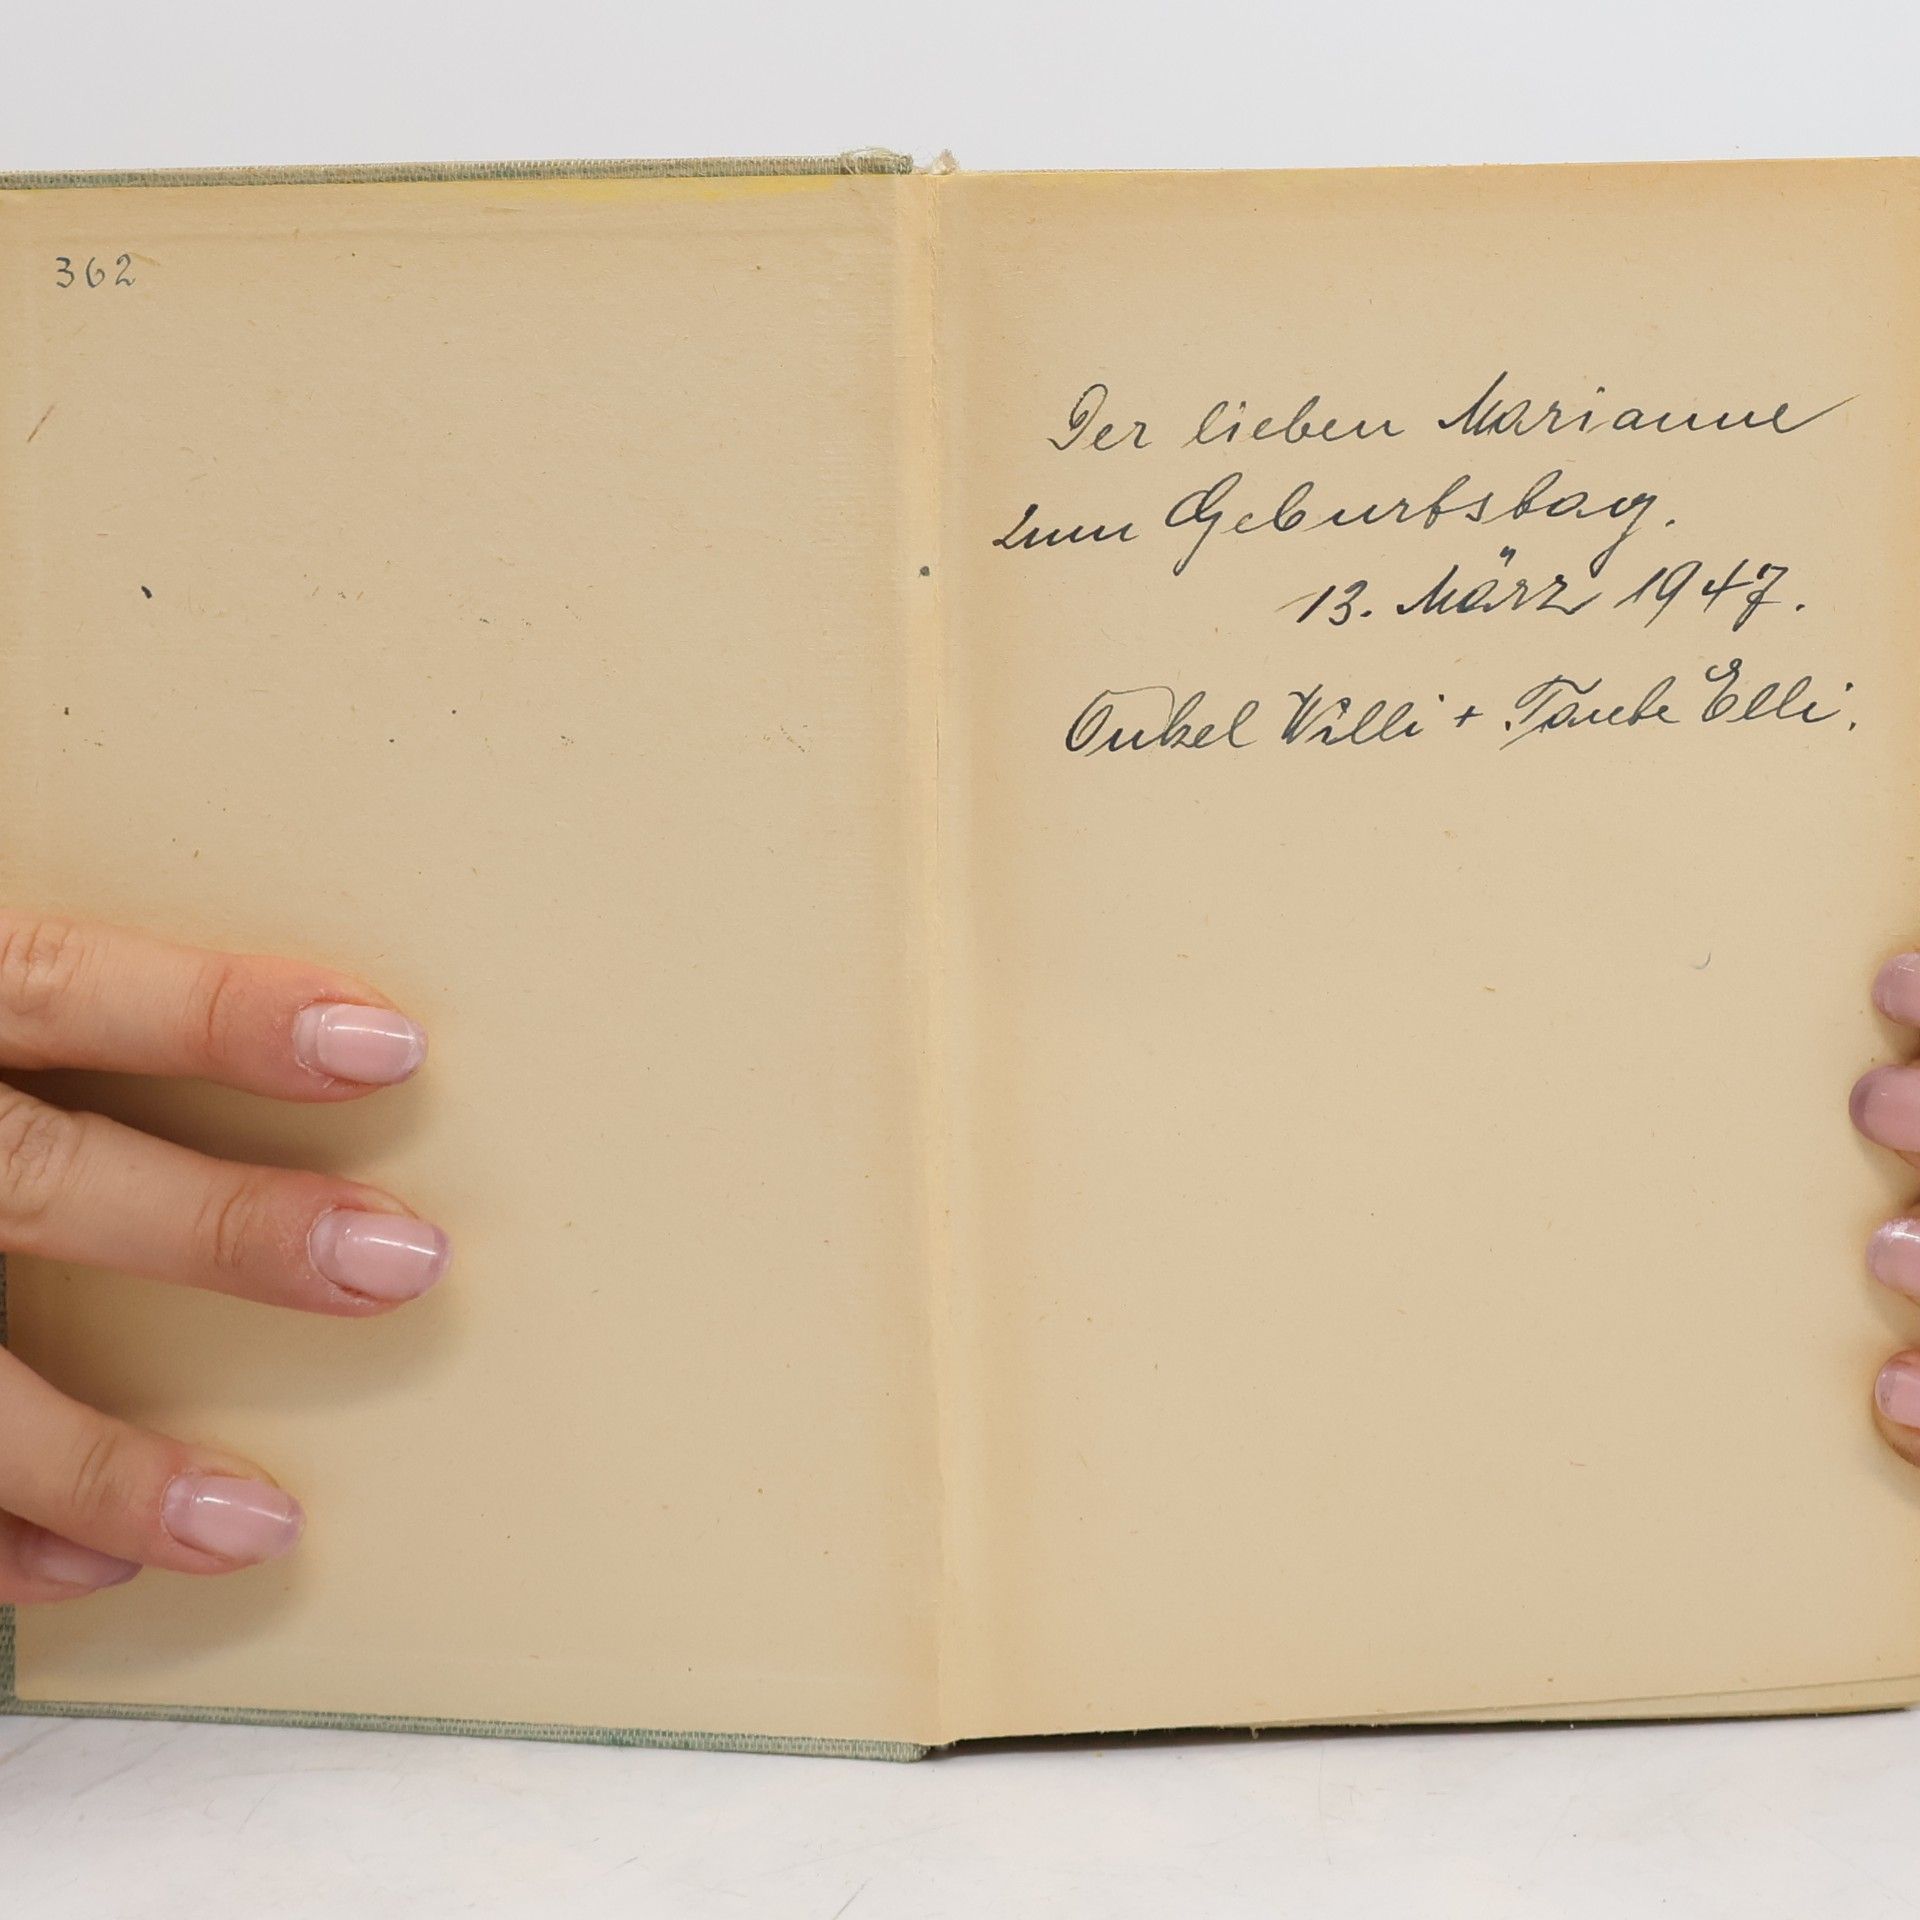 362
Der lieben Marianne
zum Geburtstag.
13. März 1947.
Onkel Willi + Tante Elli.